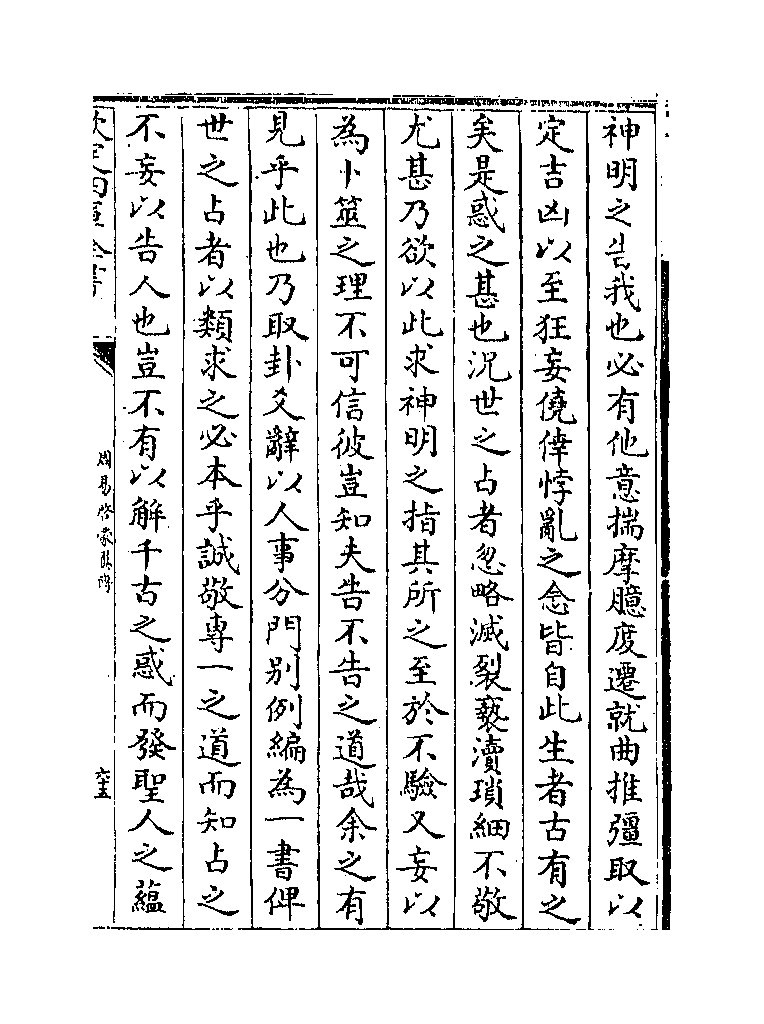 神明之告我也必有他意揣摩臆度遷就曲推彊取以
定吉凶以至狂妄僥倖悖亂之念皆自此生者古有之
矣是惑之甚也況世之占者忽略滅裂褻瀆瑣細不敬
尤甚乃欲以此求神明之指其所之至於不驗又妄以
為卜筮之理不可信彼豈知夫告不告之道哉余之有
見乎此也乃取卦爻辭以人事分門別例編為一書俾
世之占者以類求之必本乎誠敬專一之道而知占之
不妄以告人也豈不有以解千古之惑而發聖人之蘊
欽定四庫全書
周易啓蒙翼傳
六十五